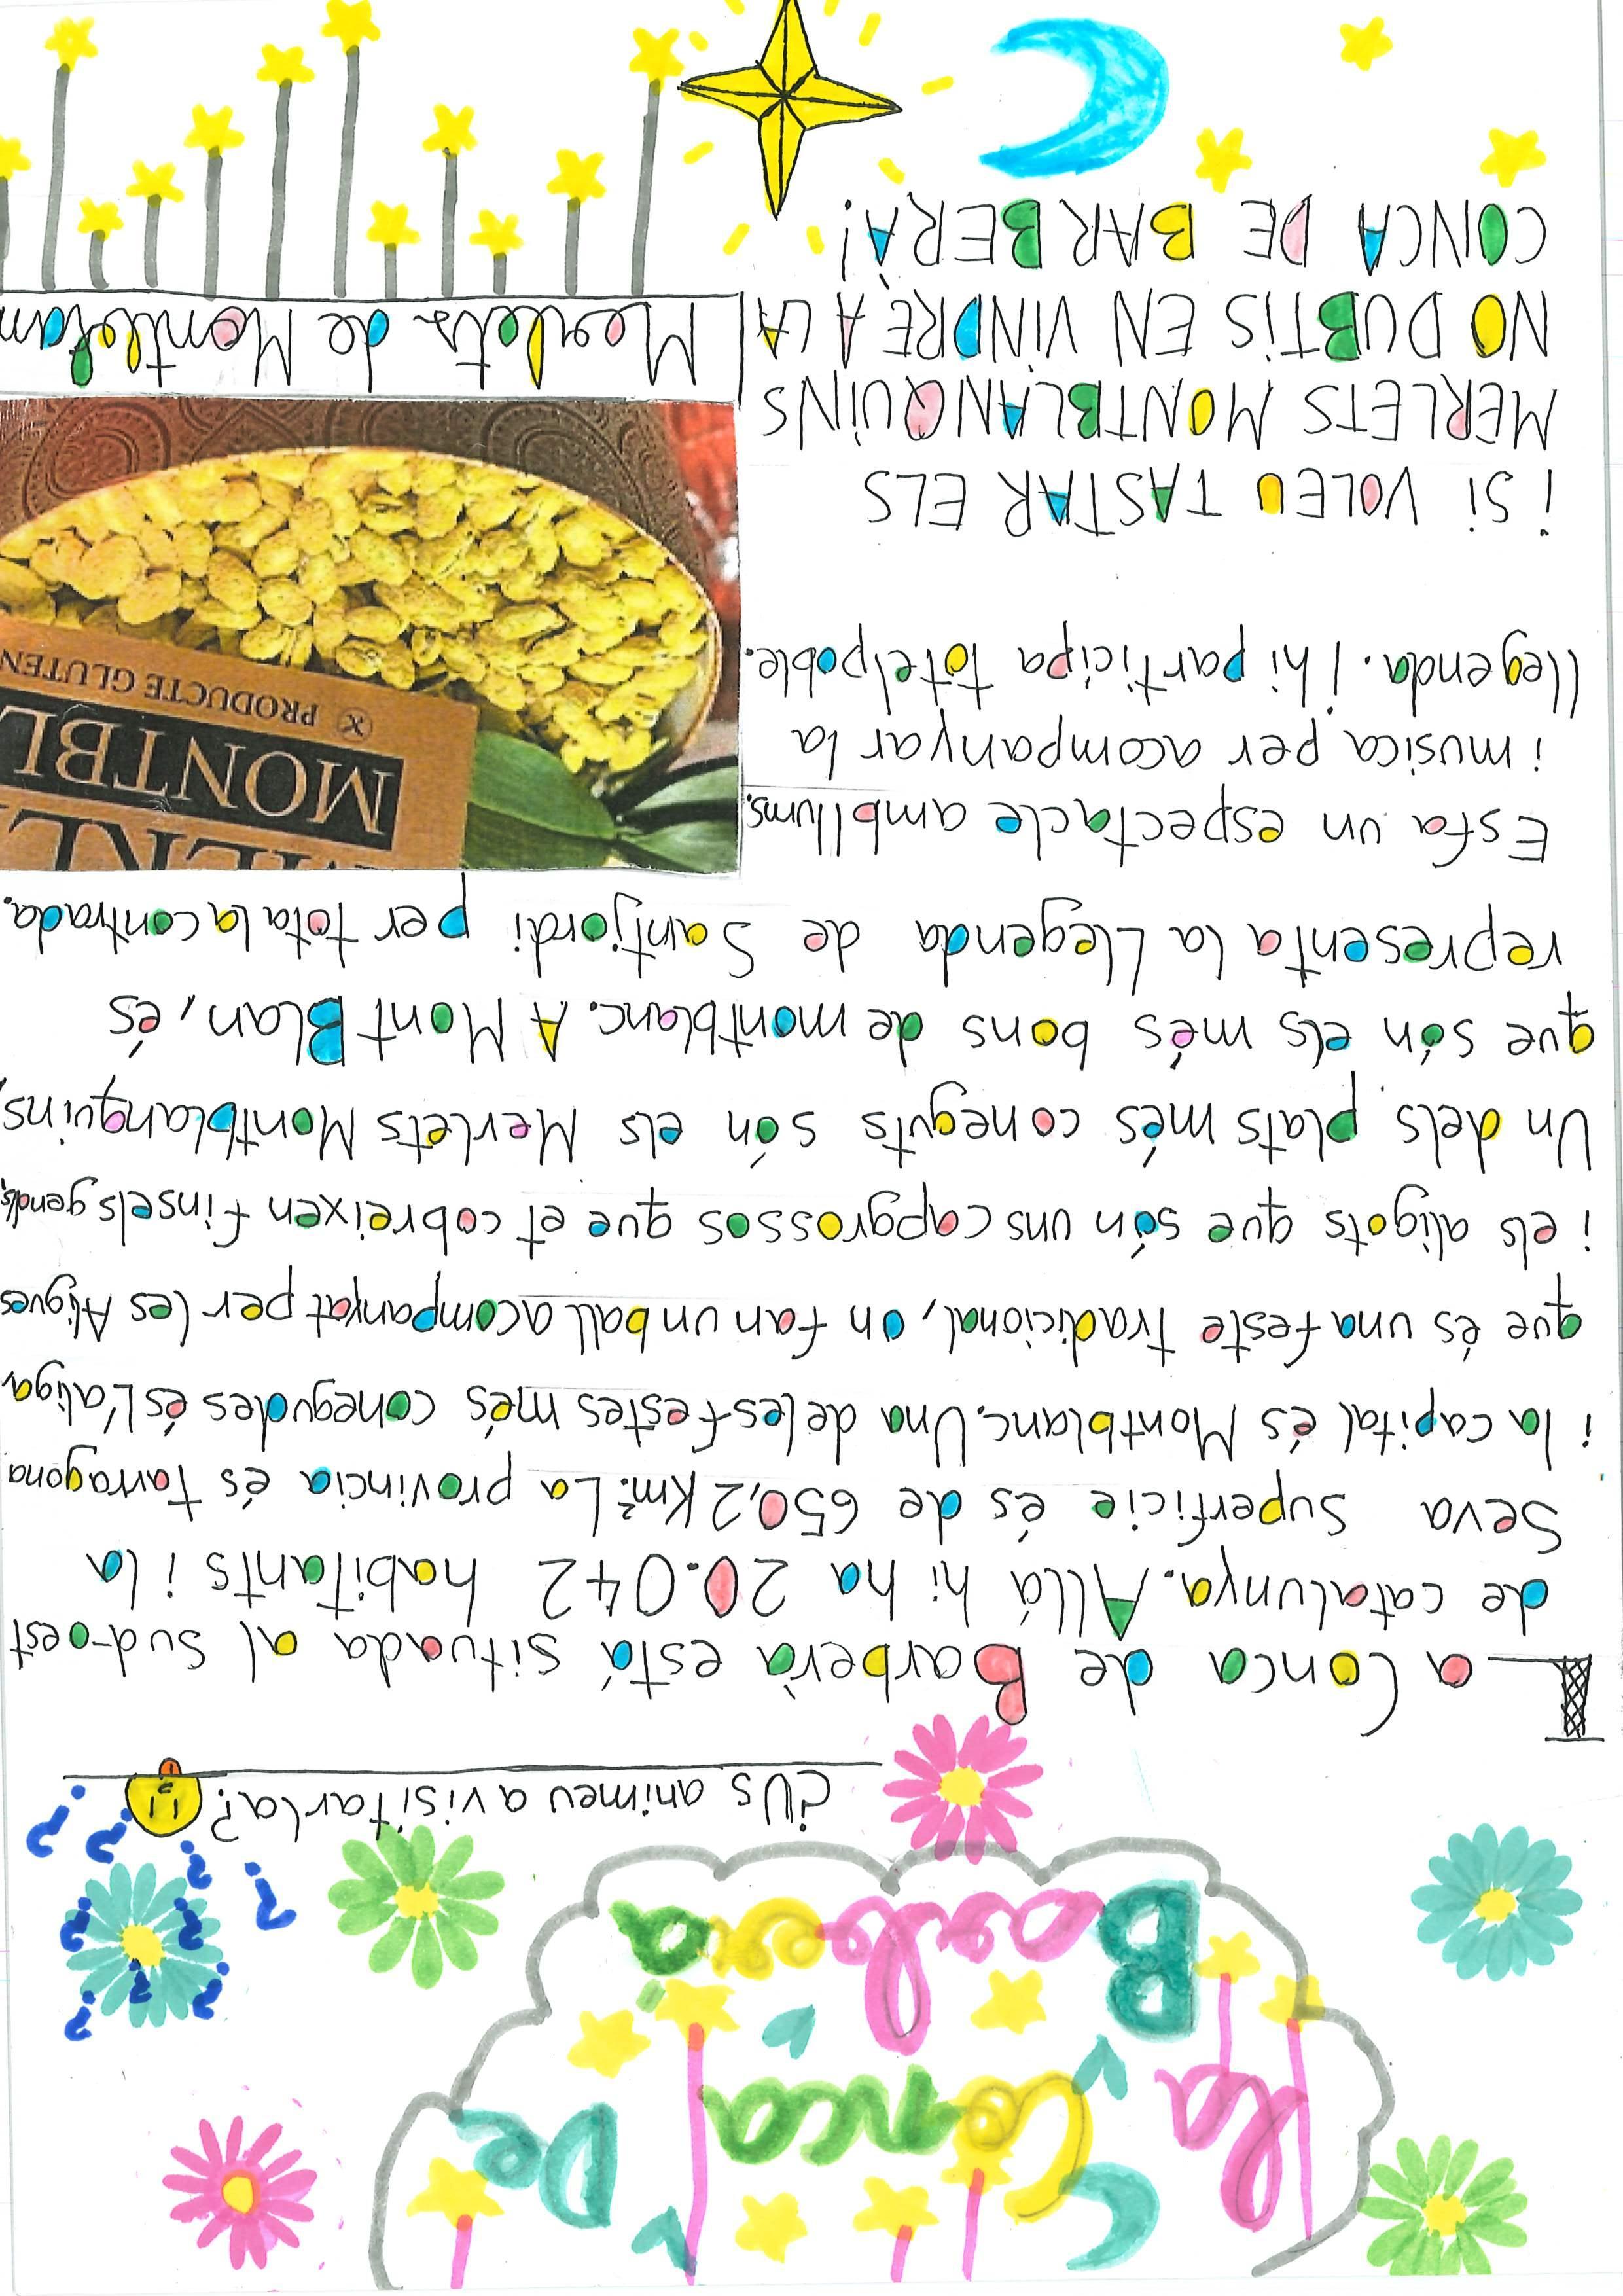 La Conca De
Barberà
¿Us animeu a visitarla?
La Conca de Barberà está situada al sud-oest
de catalunya. Allá hi ha 20.042 habitants i la
Seva superficie és de 650,2 Km². La provincia és tarragona
i la capital és Montblanc. Una de les festes més conegudes és L'aliga,
que és una feste tradicional, on fan un ball acompanyat per les Aligues
i els aligots que són uns capgrossos que et cobreixen fins els
Un dels plats més coneguts són els Merlets Montblanquins,
que són els més bons de montblanc. A Mont Blan, és
representa la Llegenda de Santjordi per tota la contrada.
Es fa un espectacle amb llums.
i musica per acompanyar la
llegenda. I hi participa tot el poble.
¡Si VOLEU TASTAR ELS
MERLETS MONTBLANQUiNS
NO DUBTiS EN ViNDRE A LA
CONCA DE BARBERÀ!
MERL
MONTBL
PRODUCTE GLUTEN
Merlets de Montblanc